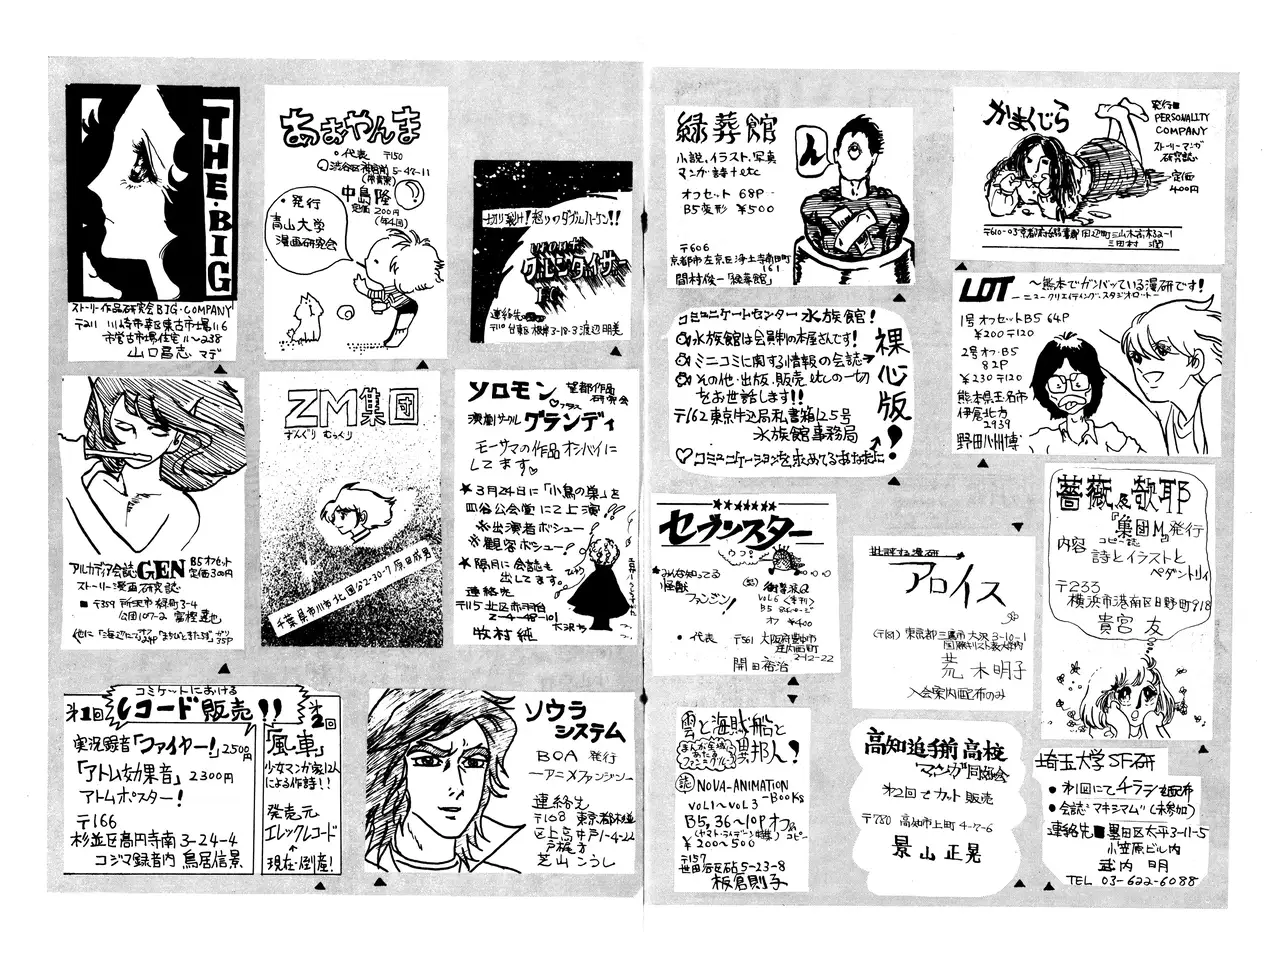 THE・BIG
ストーリー作品研究会 BIG・COMPANY
〒211 川崎市幸区東古市場116
市営古市場住宅ル〜238
山口昌志 マデ
あおやんま
・代表 〒150
渋谷区神宮前5-47-11
中島隆
定価200円
(年4回)
・発行
青山大学
漫画研究会
切り裂け!怒りのダブルハーケン!!
グルンダイザー
連絡先
〒110 台東区根岸3-18-3 渡辺明美
アルカディア会誌GEN B5オフセット
定価300円
ストーリー漫画研究誌
■〒359 所沢市緑町3-4
公団107-2 富樫達也
ZM集団
ずんぐり むっくり
千葉県市川市北国分2-30-7 原田成男
ソロモン 望都作品
研究会
プラス
演劇サークル グランディ
モーサマの作品オシバイに
してます♡
★3月24日に「小鳥の巣」を
四谷公会堂にて上演!!
※出演者ボシュー!
※観客ボシュー!
★隔月に会誌も
出してます。
連絡先
〒115 北区赤羽台
2-4-48-101
牧村純
コミケットにおける
第1回 レコード販売!! 第2回
実況録音「ファイヤー!」2500円
「アトム効果音」2300円
アトムポスター!
〒166
杉並区高円寺南3-24-4
コジマ録音内 鳥居信景
「風車」
少女マンガ家12人
による作詩!!
発売元
エレックレコード
↑
現在・倒産!
ソウラ
システム
BOA 発行
―アニメファンジン―
連絡先
〒168 東京都杉並
区上高井戸1-4-22
戸梶方
芝山こうし
緑葬館
小説、イラスト、写真
マンガ・詩+etc
オフセット 68P
B5変形 ¥500
〒606
京都市左京区浄土寺南田町
161
間村俊一「緑葬館」
ん
かまくじら
発行■
PERSONALITY
COMPANY
ストーリーマンガ
研究誌
・定価
400円
コミュニケートセンター 水族館!
水族館は会員制の本屋さんです!
ミニコミに関する情報の会誌→
その他・出版・販売 etcの一切
をお世話します!!
〒162 東京牛込局私書箱125号
水族館事務局
♡コミュニケーションを求めてるあなたに!
裸心版!
LOT 〜熊本でガンバッている漫研です!
―ニュークリエイティング・スタジオロット―
1号 オフセットB5 64P
¥200 〒120
2号 オフ・B5
82P
¥230 〒120
熊本県玉名市
伊倉北方
2939
野田八州博
セブンスター
ウフ!
★みんな知ってる
怪獣
ファンジン!
(誌) 衝撃波Q
VOL6 (季刊)
オフ ¥400
・代表 〒561 大阪府豊中市
庄内西町
2-12-22
開田裕治
批評する漫研
アロイス
(〒181) 東京都三鷹市大沢3-10-1
国際キリスト教大学内
荒木明子
入会案内配布のみ
薔薇 & 欹耶
『集団M』発行
コピー誌
内容 詩とイラストと
ペダントリィ
〒233
横浜市港南区日野町918
貴宮友
雲と海賊船と
異邦人!
(誌) NOVA-ANIMATION
-BOOKS
VOL1〜VOL3
B5, 36〜10P オフ
コピー
¥200〜500
〒157
世田谷区砧5-23-8
板倉則子
高知追手前高校
マンガ同好会
第2回でカット販売
〒780 高知市上町4-7-6
景山正晃
埼玉大学SF研
●第1回にてチラシ配布
●会誌"マキシマム"(未参加)
連絡先■墨田区太平3-11-5
小笠原ビル内
武内 明
TEL 03-622-6088